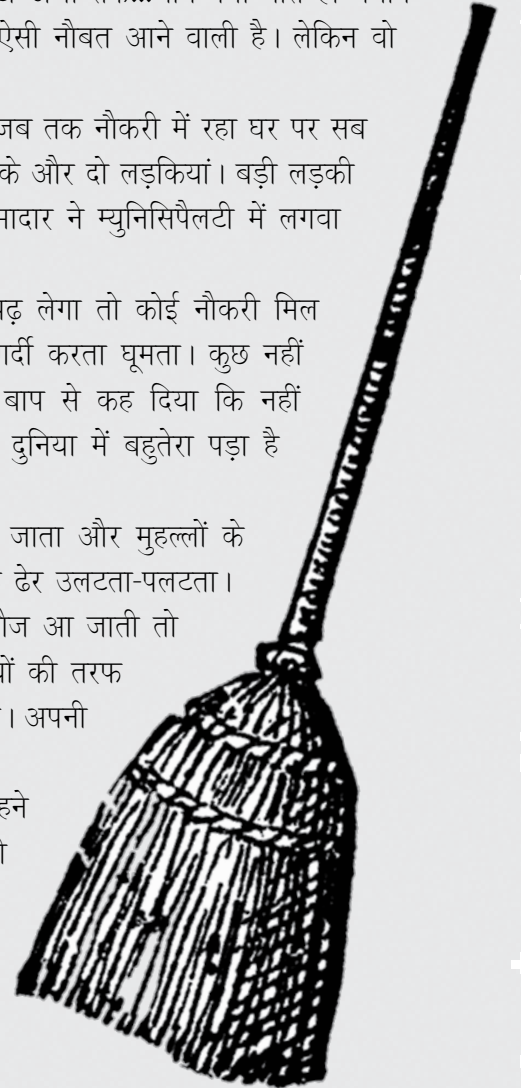 ऐसी नौबत आने वाली है। लेकिन वो
जब तक नौकरी में रहा घर पर सब
के और दो लड़कियां। बड़ी लड़की
मादार ने म्युनिसिपैलटी में लगवा
लेगा तो कोई नौकरी मिल
गर्दी करता घूमता। कुछ नहीं
बाप से कह दिया कि नहीं
दुनिया में बहुतेरा पड़ा है
जाता और मुहल्लों के
ढेर उलटता-पलटता।
आ जाती तो
की तरफ
। अपनी